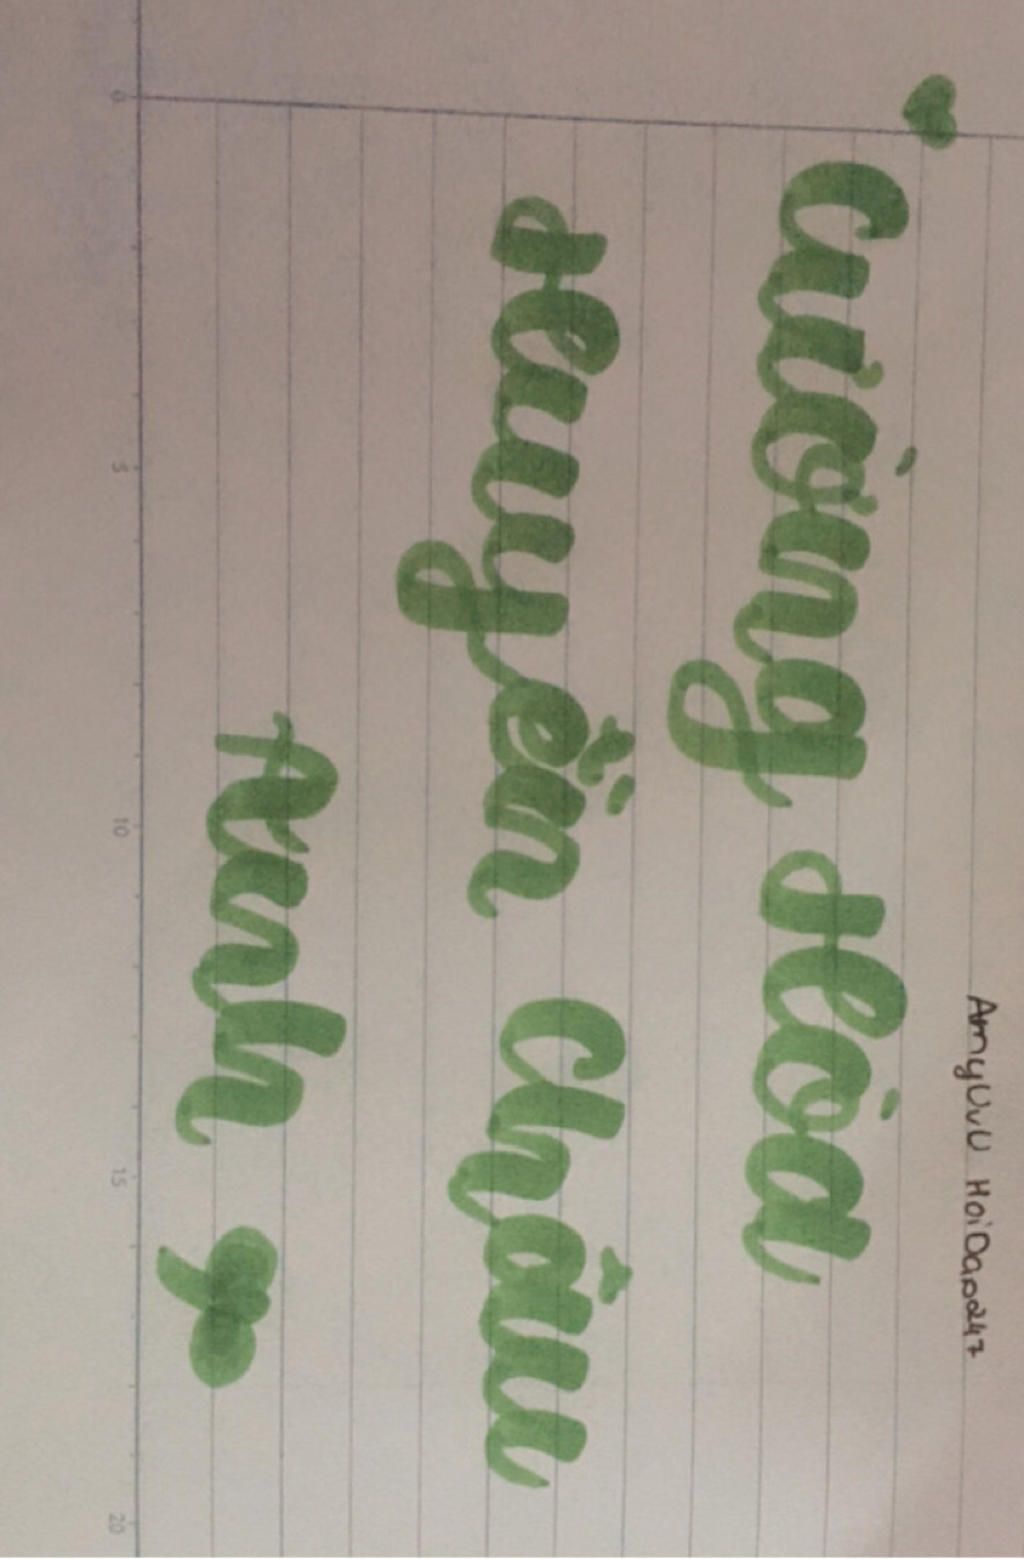 AmyUvU HoiDap247
Cường Hóa
Huyền Châu
Anh
0 5 10 15 20